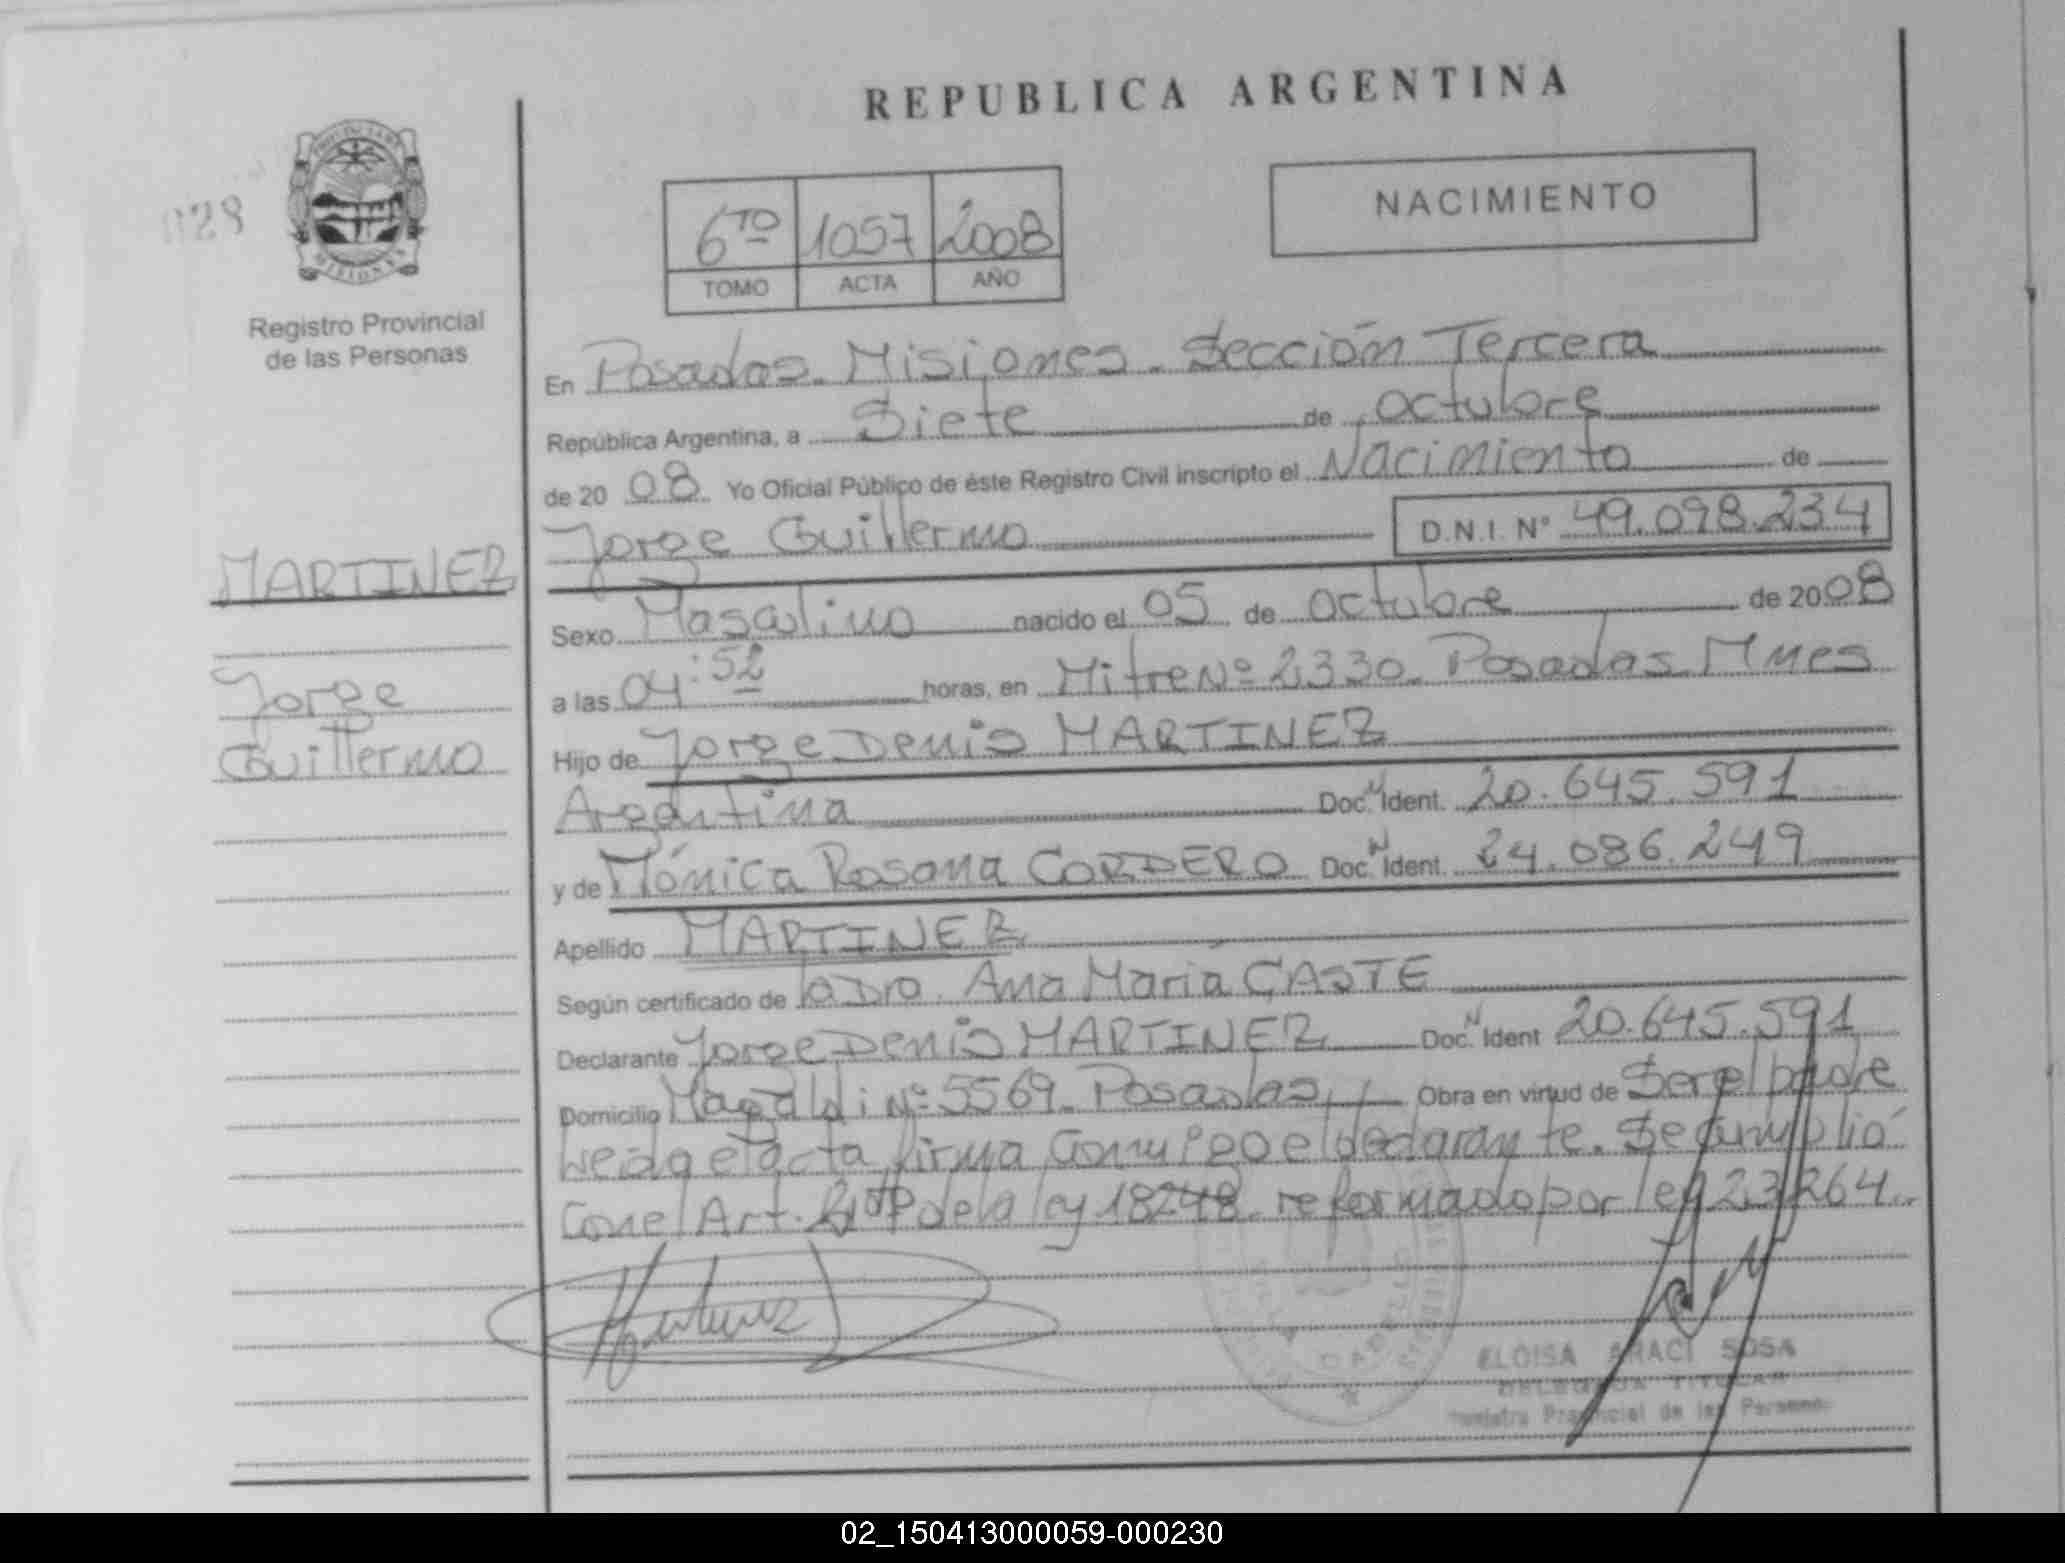 REPUBLICA ARGENTINA
028
PROVINCIA DE MISIONES
Registro Provincial
de las Personas
6TO 1057 2008
TOMO ACTA AÑO
NACIMIENTO
En Posadas. Misiones. Sección Tercera
República Argentina, a Siete de octubre
de 20 08 Yo Oficial Público de éste Registro Civil inscripto el Nacimiento de
Jorge Guillermo D.N.I. N° 49.098.234
MARTINEZ
Jorge
Guillermo
Sexo Masculino nacido el 05 de octubre de 2008
a las 04:52 horas, en Mitre Nº 2330. Posadas Mnes
Hijo de Jorge Denis MARTINEZ
Argentina Doc. N Ident. 20.645.591
y de Mónica Rosana CORDERO Doc. N Ident. 24.086.249
Apellido MARTINEZ
Según certificado de la Dra. Ana María CASTE
Declarante Jorge Denis MARTINEZ Doc. N Ident 20.645.591
Domicilio Magaldi Nº 5569. Posadas Obra en virtud de Ser el padre
Leida el acta firma conmigo el declarante. Se cumplió
con el Art. de la ley 18248 reformado por ley 23264.
ELOISA ARACI SOSA
DELEGADA TITULAR
Registro Provincial de las Personas
02_150413000059-000230